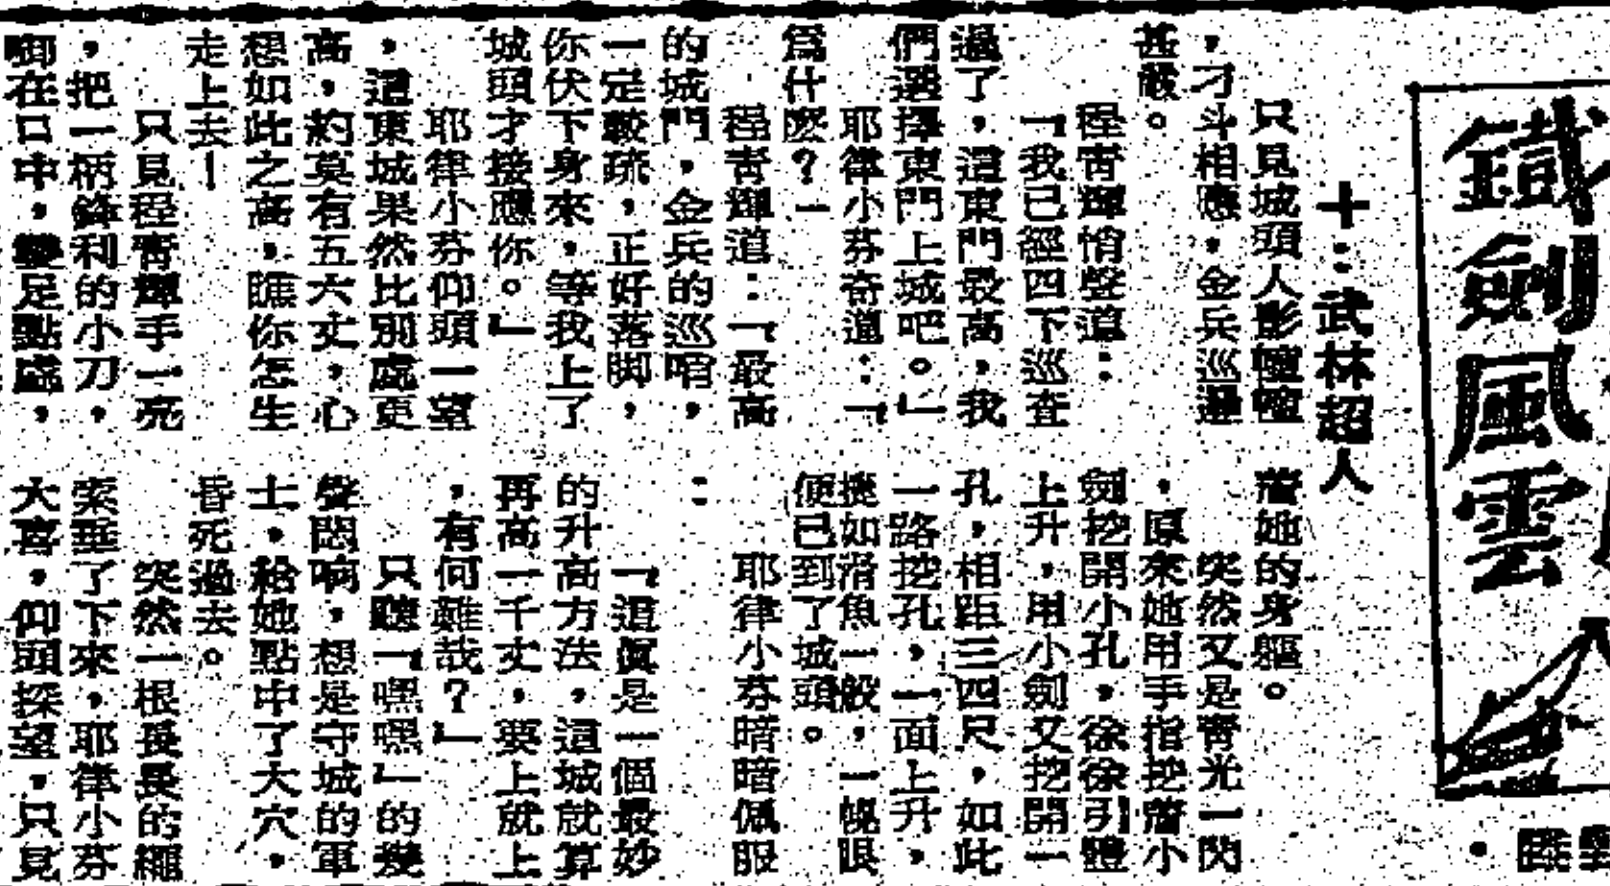 鐵劍風雲
十：武林超人
只見城頭人影幢幢
，刁斗相應，金兵巡邏
甚嚴。
程靑輝悄聲道：
「我已經四下巡查
過了，這東門最高，我
們選擇東門上城吧。」
耶律小芬奇道：「
爲什麽？」
程靑輝道：「最高
的城門，金兵的巡哨，
一定較疏，正好落脚，
你伏下身來，等我上了
城頭才接應你。」
耶律小芬仰頭一望
，這東城果然比別處更
高，約莫有五六丈，心
想如此之高，瞧你怎生
走上去！
只見程靑輝手一亮
，把一柄鋒利的小刀，
啣在口中，雙足點處，
着她的身軀。
突然又是靑光一閃
，原來她用手指挖着小
劍挖開小孔，徐徐引體
上升，用小劍又挖開一
孔，相距三四尺，如此
一路挖孔，一面上升，
㨗如滑魚一般，一幌眼
便已到了城頭。
耶律小芬暗暗佩服
：
「這眞是一個最妙
的升高方法，這城就算
再高一千丈，要上就上
，有何難哉？」
只聽「嘿嘿」的幾
聲悶响，想是守城的軍
士，給她點中了大穴，
昏死過去。
突然一根長長的繩
索垂了下來，耶律小芬
大喜，仰頭探望，只見